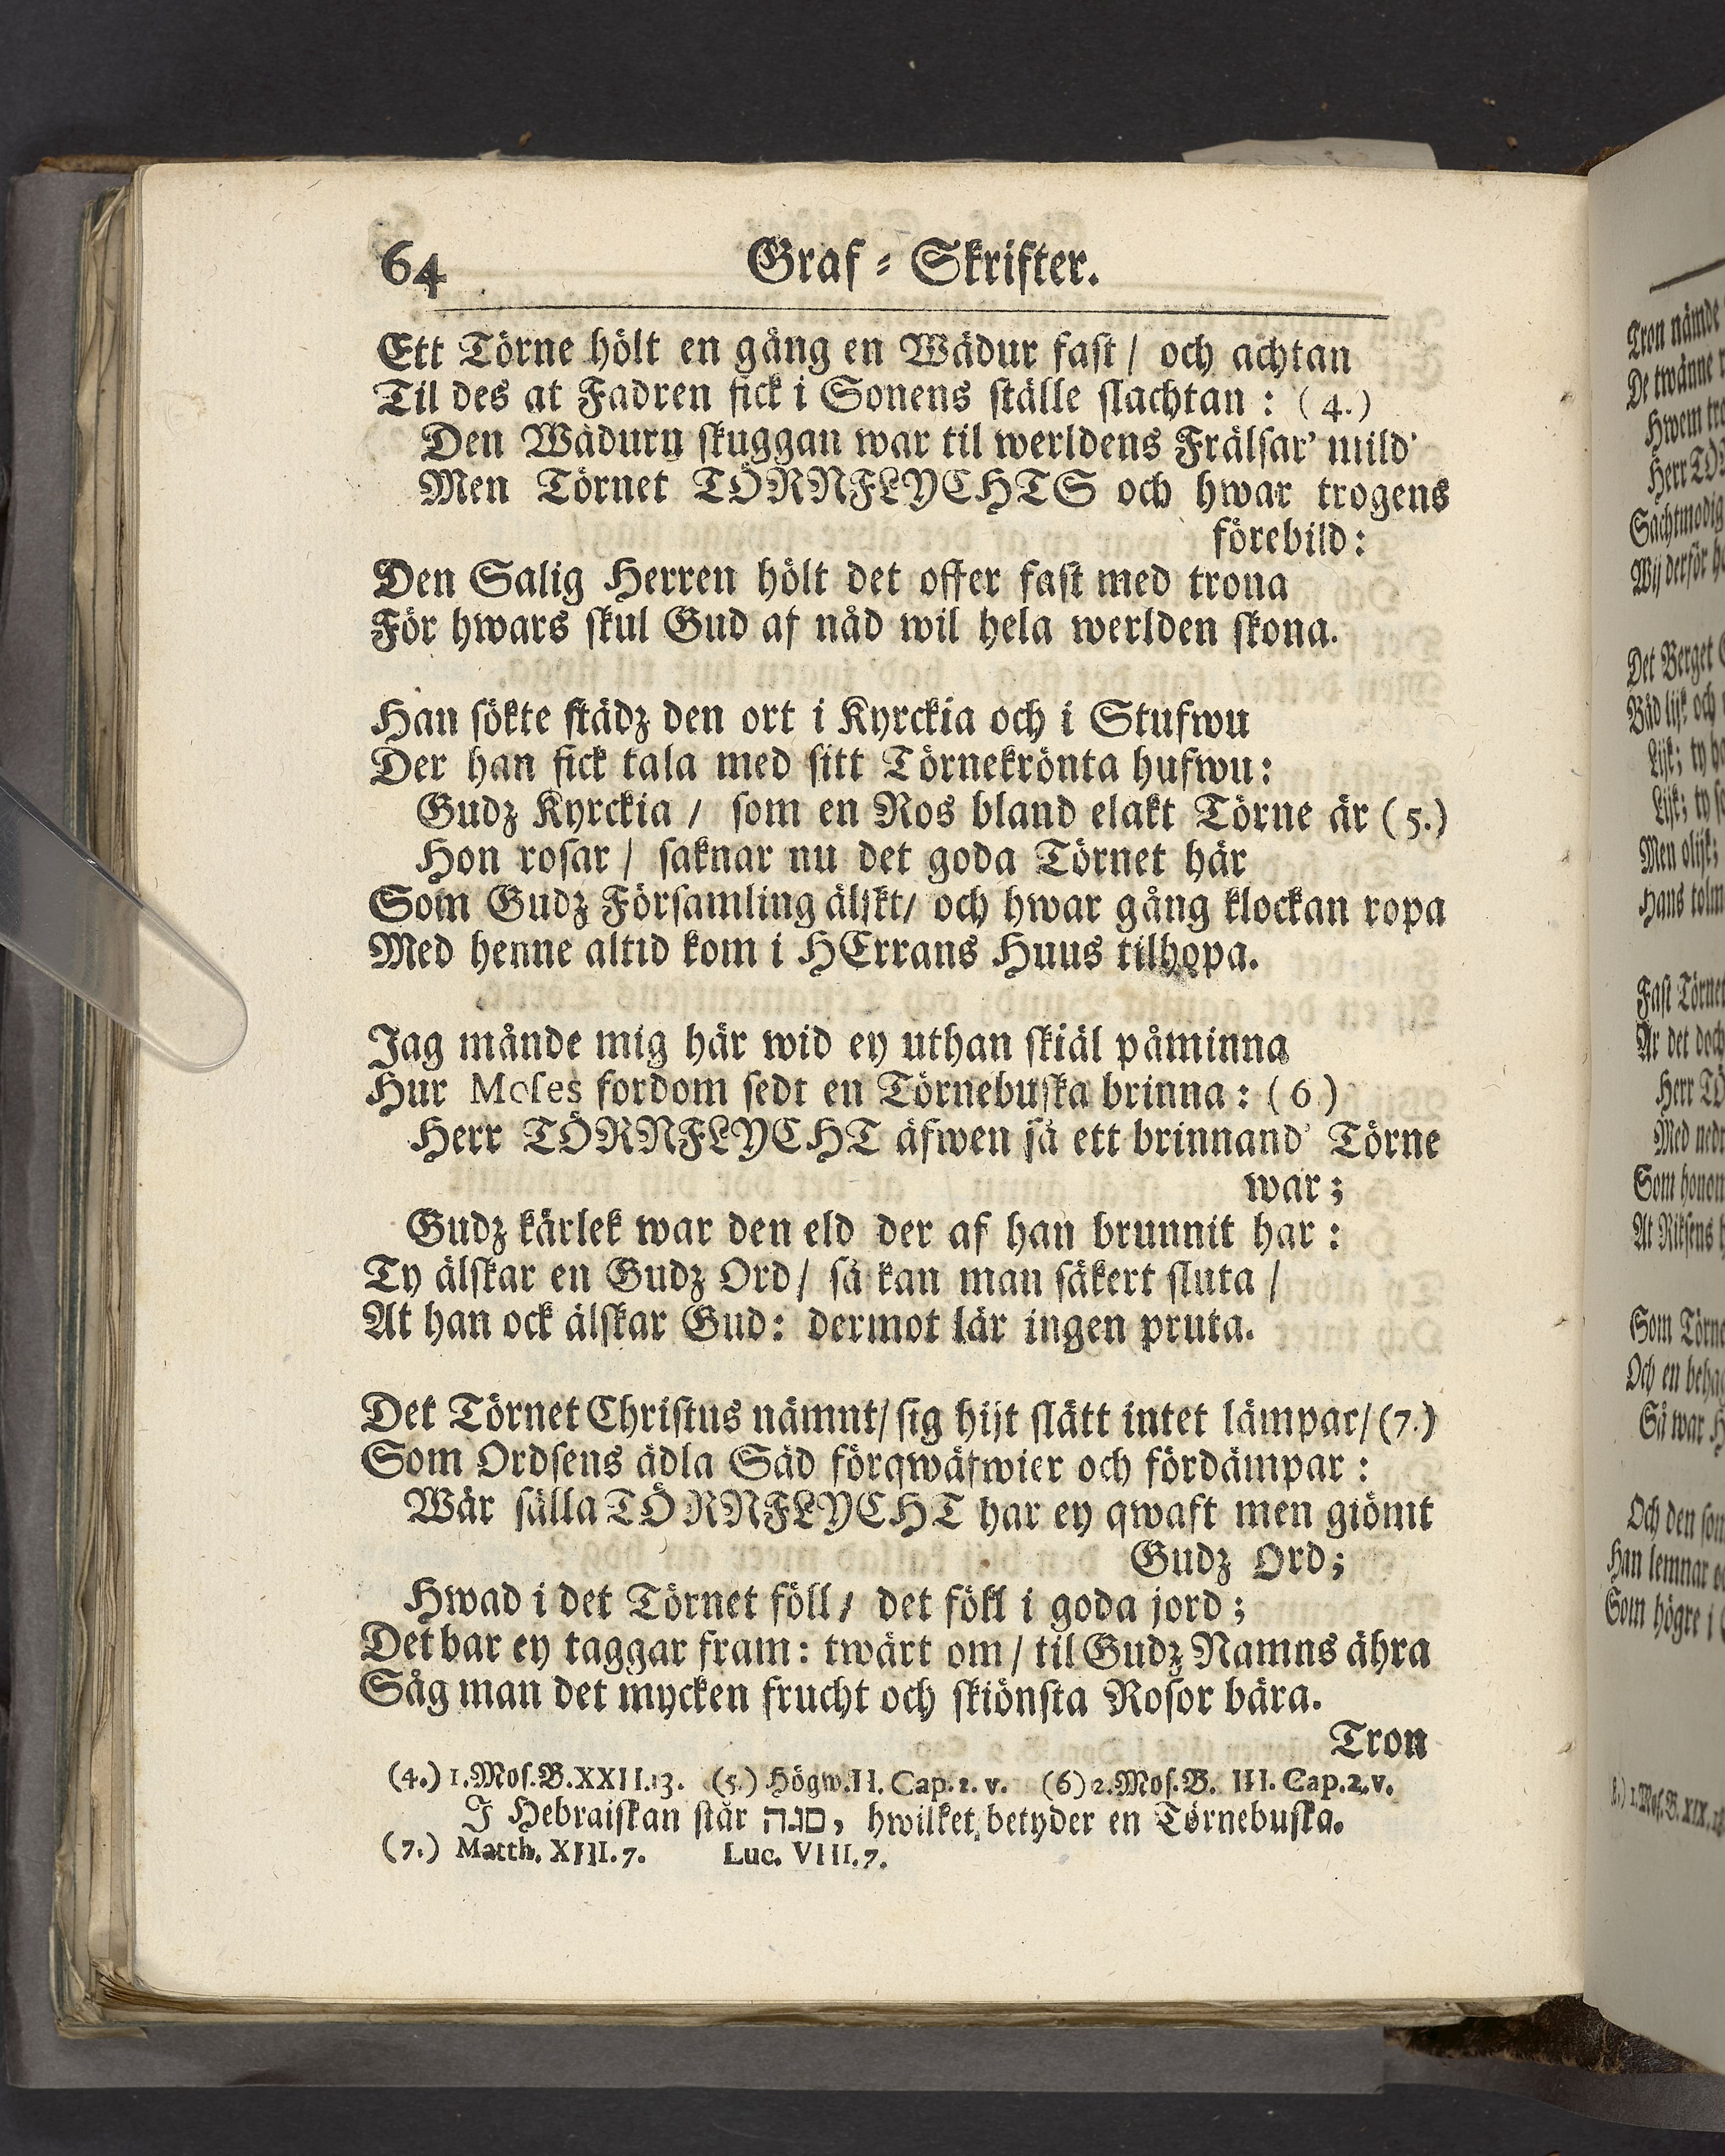 64 Graf-Skrifter.
Ett Törne hölt en gång en Wädur fast / och achtan
Til des at Fadren fick i Sonens ställe slachtan : (4.)
Den Wädurn skuggan war til werldens Frälsar' mild'
Men Törnet TÖRNFLYCHTS och hwar trogens
förebild:
Den Salig Herren hölt det offer fast med trona
För hwars skul Gud af nåd wil hela werlden skona.
Han sökte städz den ort i Kyrckia och i Stufwu
Der han fick tala med sitt Törnekrönta hufwu:
Gudz Kyrckia / som en Ros bland elakt Törne är (5.)
Hon rosar / saknar nu det goda Törnet här
Som Gudz Församling älskt/ och hwar gång klockan ropa
Med henne altid kom i HErrans Huus tilhopa.
Jag månde mig här wid ey uthan skiäl påminna
Hur Moses fordom sedt en Törnebuska brinna : (6.)
Herr TÖRNFLYCHT äfwen så ett brinnand' Törne
war;
Gudz kärlek war den eld der af han brunnit har :
Ty älskar en Gudz Ord/ så kan man säkert sluta /
At han ock älskar Gud: dermot lär ingen pruta.
Det Törnet Christus nämnt/ sig hijt slätt intet lämpar/ (7.)
Som Ordsens ädla Säd förqwäfwier och fördämpar :
Wår sälla TÖRNFLYCHT har ey qwaft men giömt
Gudz Ord;
Hwad i det Törnet föll / det föll i goda jord;
Det bar ey taggar fram: twärt om / til Gudz Namns ähra
Såg man det mycken frucht och skiönsta Rosor bära.
Tron
(4.) 1. Mos. B. XXII.13. (5.) Högw. II. Cap. 2. v. (6) 2. Mos. B. III. Cap. 2. v.
I Hebraiskan står סנה, hwilket betyder en Törnebuska.
(7.) Matth. XIII. 7. Luc. VIII. 7.
Tron nämde
De twänne
Herr TÖ
Sachtmodig
Wij derför
Det Berget
Men olijk;
Fast Törnet
Är det doch
Herr TÖ
Som honom
At Riksens
Som Törne
Och en behag
Så war H
Och den som
Han lemnar
Som högre i